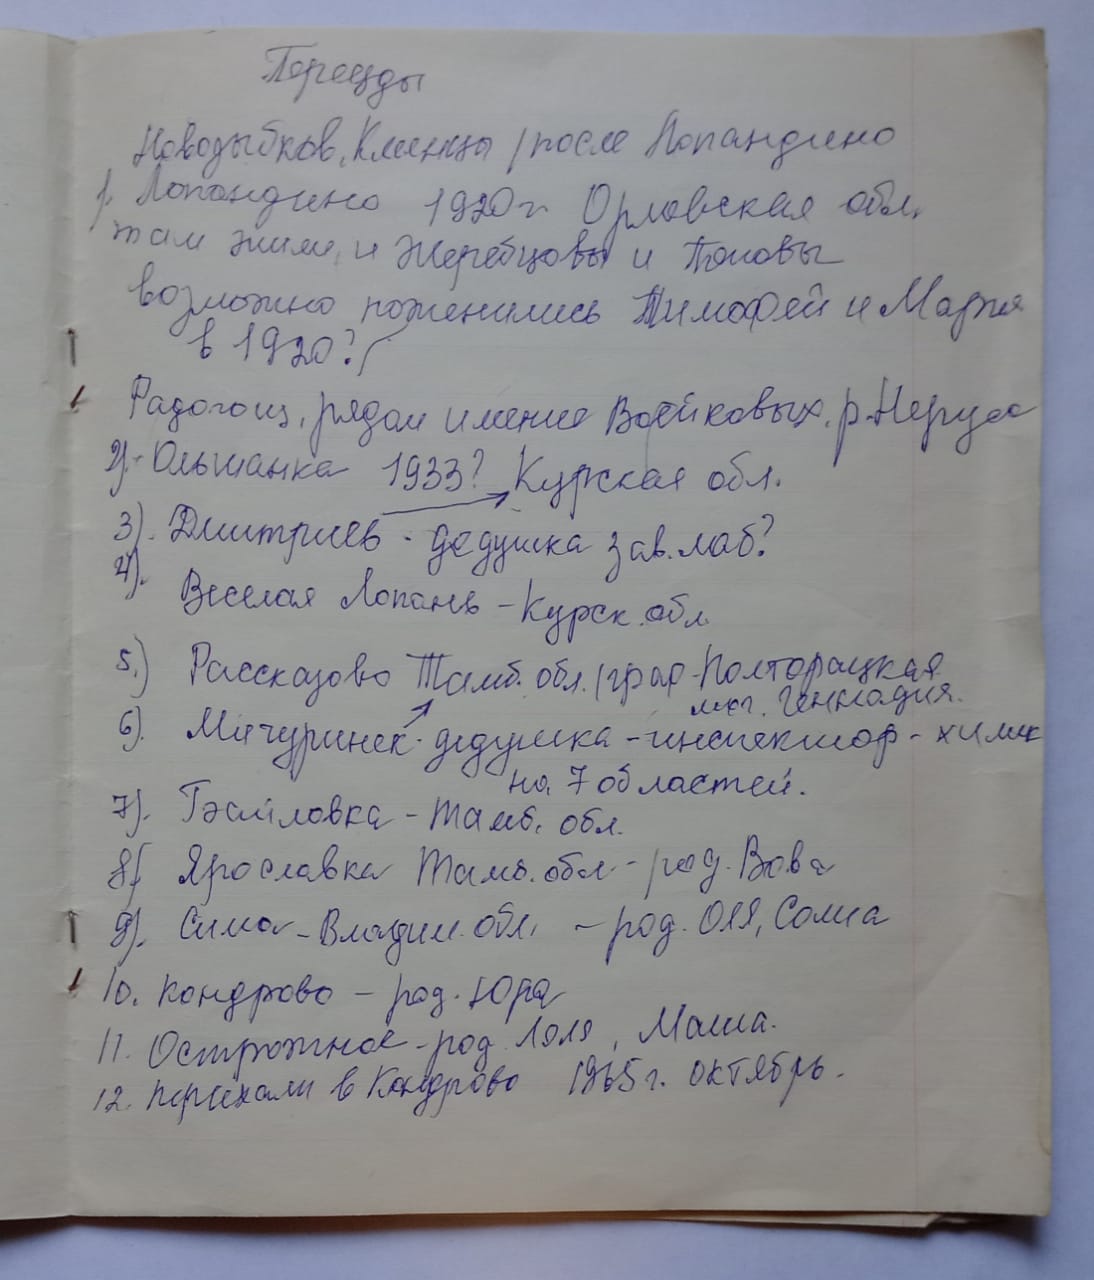 Переезды
Новозыбков, Клинцы /после Лопандино
1. Лопандино 1920 г Орловская обл.
там жили и Жеребцовы и Поповы
возможно поженились Тимофей и Мария
в 1920?/
Радогощ, рядом имение Войковых, р. Неруса
2). Ольшанка 1933? Курская обл.
3). Дмитриев - дедушка зав. лаб?
4). Веселая Лопань - Курск. обл.
5.) Рассказово Тамб. обл. /граф. Полторацкая
мог. Геннадия.
6). Мичуринск - дедушка - инспектор - химик
на 7 областей.
7). - Тамб. обл.
8/ Ярославка Тамб. обл - род. Вова
9). Сима - Владим. обл. - род. Оля, Соша
10. Кондрово - род. Юра
11. Острожное - род. Ляля, Маша.
12. переехали в Кондрово 1965 г. октябрь.